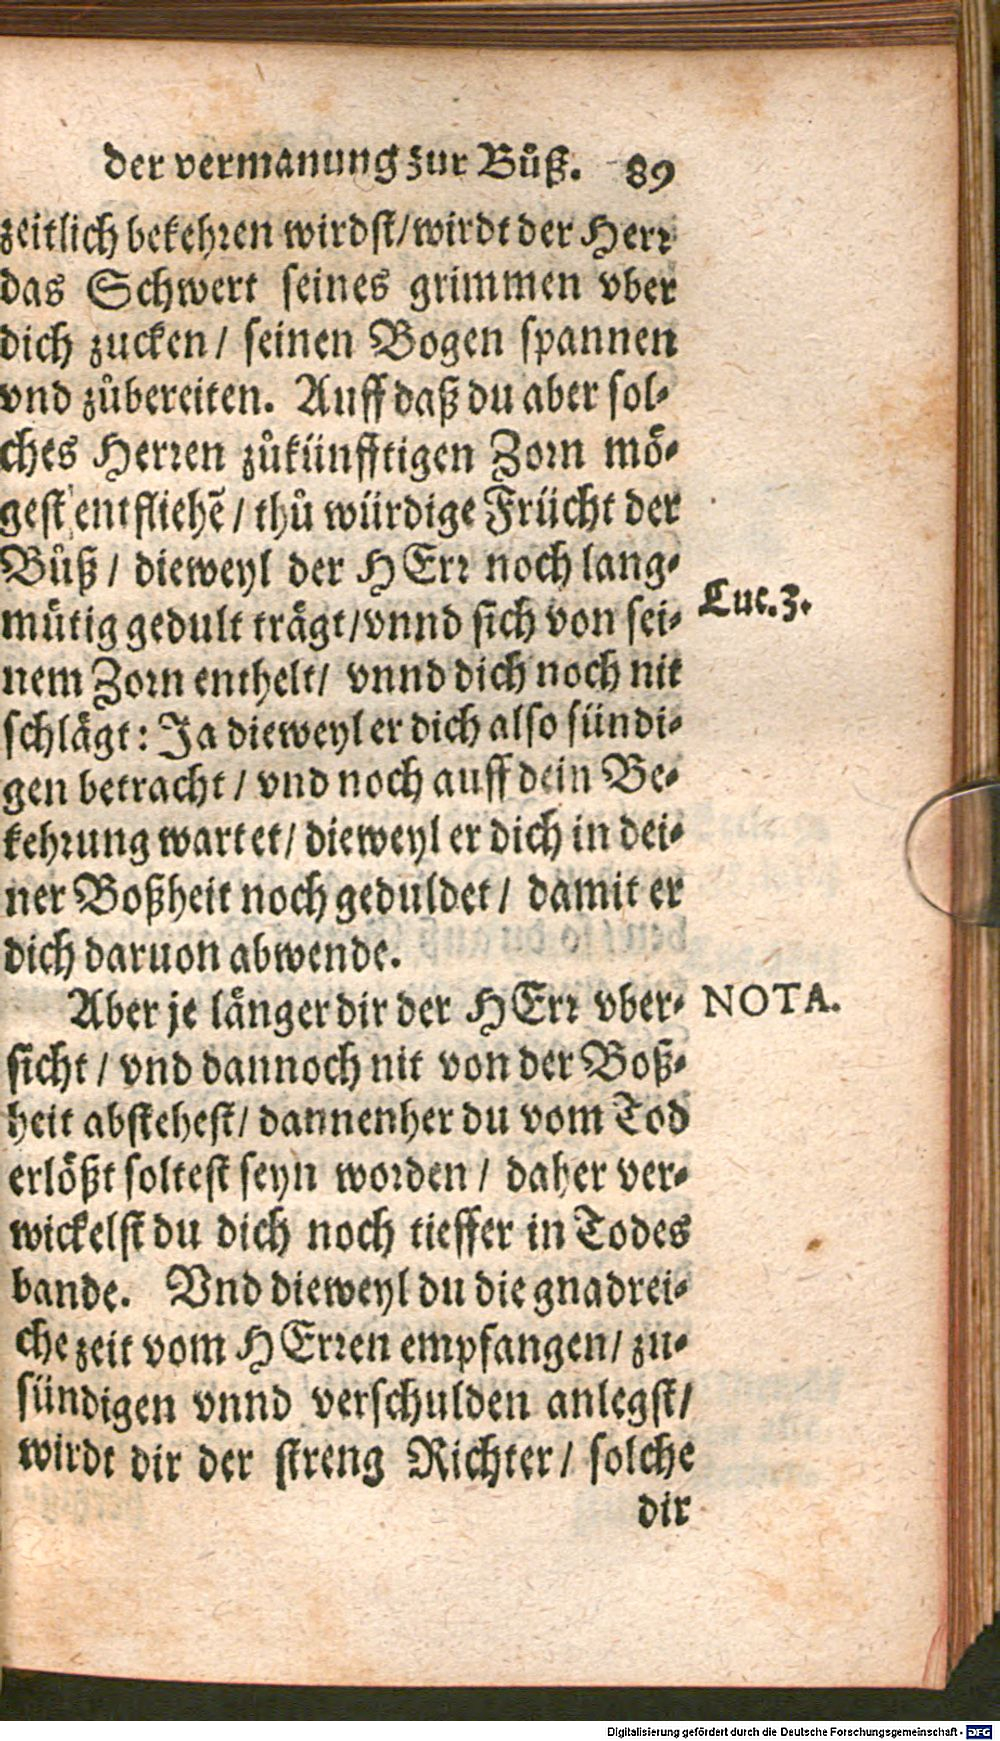 der vermanung zur Bůß. 89
zeitlich bekehren wirdst/wirdt der Herr
das Schwert seines grimmen vber
dich zucken/ seinen Bogen spannen
vnd zůbereiten. Auff daß du aber sol-
ches Herren zůkünfftigen Zorn mö-
gest entfliehẽ/ thů würdige Frücht der
Bůß/ dieweyl der HErr noch lang-
mütig gedult trägt/vnnd sich von sei-
Luc.3.
nem Zorn enthelt/ vnnd dich noch nit
schlägt: Ja dieweyl er dich also sündi-
gen betracht/ vnd noch auff dein Be-
kehrung wartet/ dieweyl er dich in dei-
ner Boßheit noch geduldet/ damit er
dich daruon abwende.
Aber je länger dir der HErr vber-
NOTA.
sicht/ vnd dannoch nit von der Boß-
heit abstehest/ dannenher du vom Tod
erlößt soltest seyn worden/ daher ver-
wickelst du dich noch tieffer in Todes
bande. Vnd dieweyl du die gnadrei-
che zeit vom HErren empfangen/ zu-
sündigen vnnd verschulden anlegst/
wirdt dir der streng Richter/ solche
dir
Digitalisierung gefördert durch die Deutsche Forschungsgemeinschaft - DFG